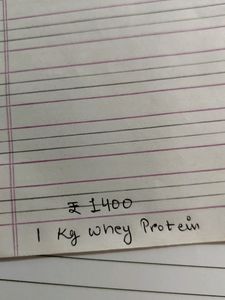 ₹ 1400
1 Kg Whey Protein